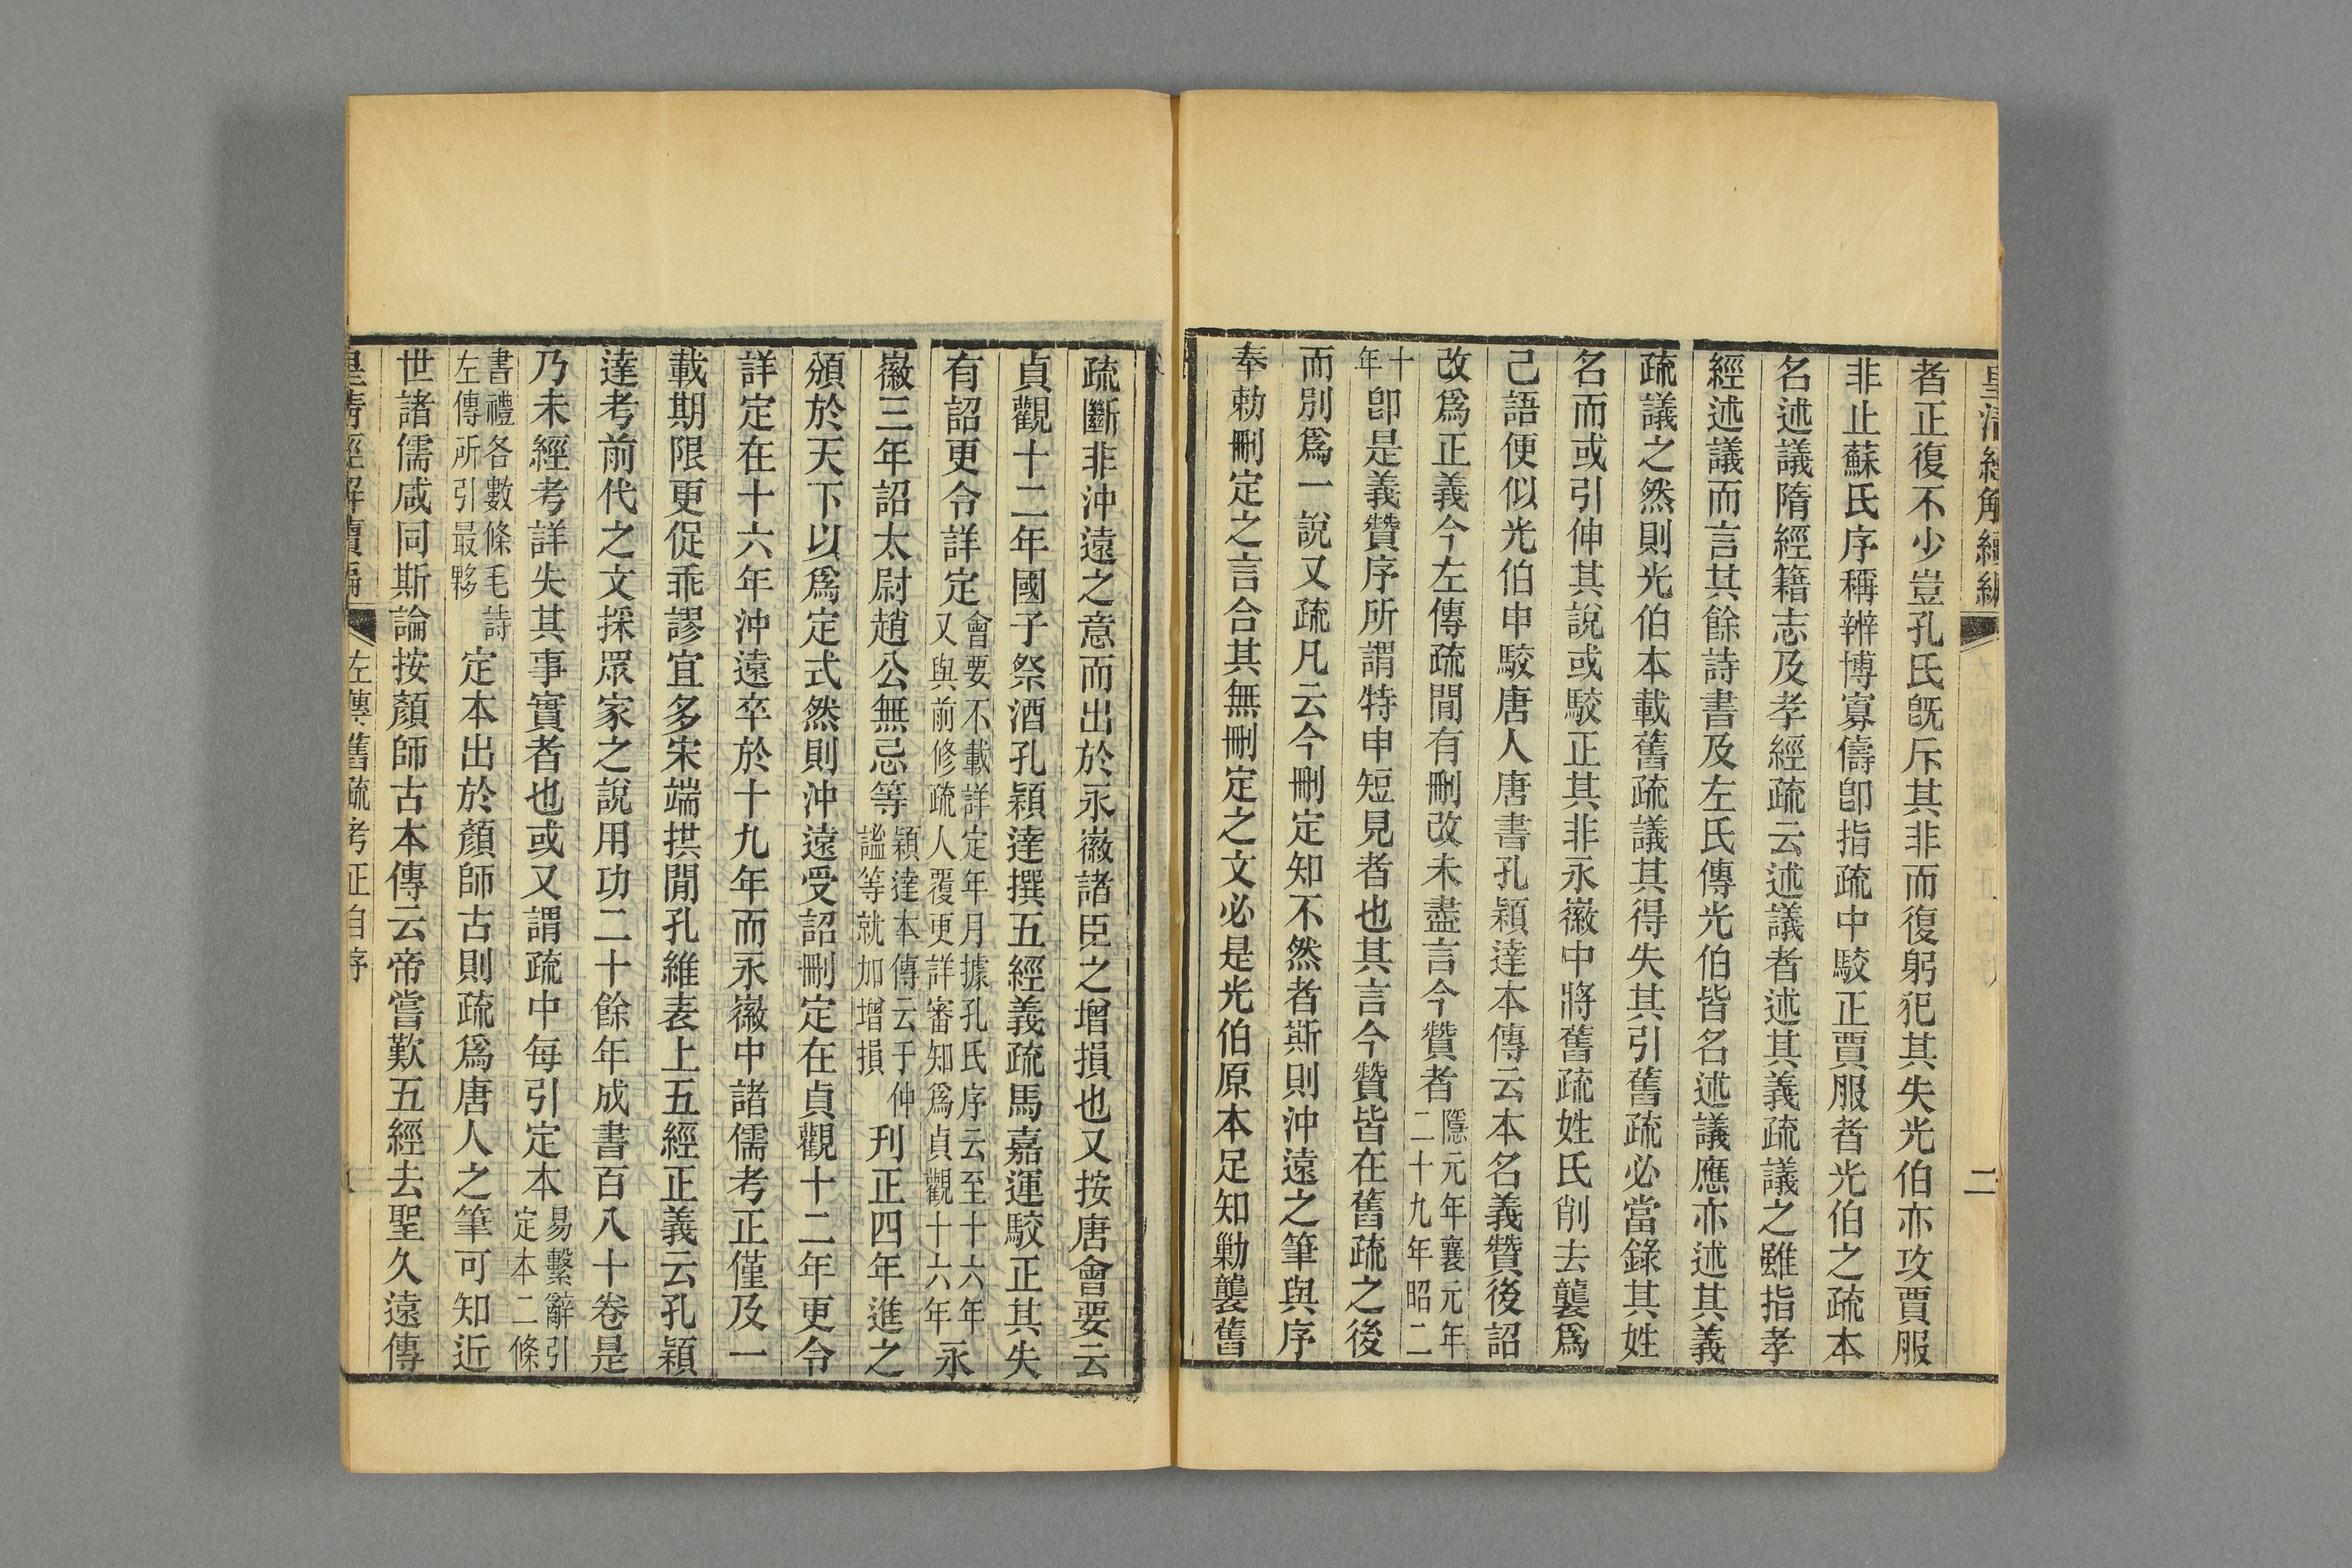 皇清經解續編
二
者正復不少豈孔氏旣斥其非而復躬犯其失光伯亦攻賈服
非止蘇氏序稱辨博寡儔卽指疏中駮正賈服者光伯之疏本
名述議隋經籍志及孝經疏云述議者述其義疏議之雖指孝
經述議而言其餘詩書及左氏傳光伯皆名述議應亦述其義
疏議之然則光伯本載舊疏議其得失其引舊疏必當錄其姓
名而或引伸其說或駮正其非永徽中將舊疏姓氏削去襲爲
己語便似光伯申駮唐人唐書孔穎達本傳云本名義贊後詔
改爲正義今左傳疏閒有刪改未盡言今贊者隱元年襄元年二十九年昭二
十年卽是義贊序所謂特申短見者也其言今贊皆在舊疏之後
而別爲一說又疏凡云今刪定知不然者斯則沖遠之筆與序
奉勅刪定之言合其無刪定之文必是光伯原本足知勦襲舊
疏斷非沖遠之意而出於永徽諸臣之增損也又按唐會要云
貞觀十二年國子祭酒孔穎達撰五經義疏馬嘉運駮正其失
有詔更令詳定會要不載詳定年月據孔氏序云至十六年又與前修疏人覆更詳審知爲貞觀十六年永
徽三年詔太尉趙公無忌等穎達本傳云于仲謐等就加增損刋正四年進之
頒於天下以爲定式然則沖遠受詔刪定在貞觀十二年更令
詳定在十六年沖遠卒於十九年而永徽中諸儒考正僅及一
載期限更促乖謬宜多宋端拱閒孔維表上五經正義云孔穎
達考前代之文採眾家之說用功二十餘年成書百八十卷是
乃未經考詳失其事實者也或又謂疏中每引定本易繫辭引定本二條
書禮各數條毛詩左傳所引最夥定本出於顏師古則疏爲唐人之筆可知近
世諸儒咸同斯論按顏師古本傳云帝嘗歎五經去聖久遠傳
皇清經解續編
左傳舊疏考正自序